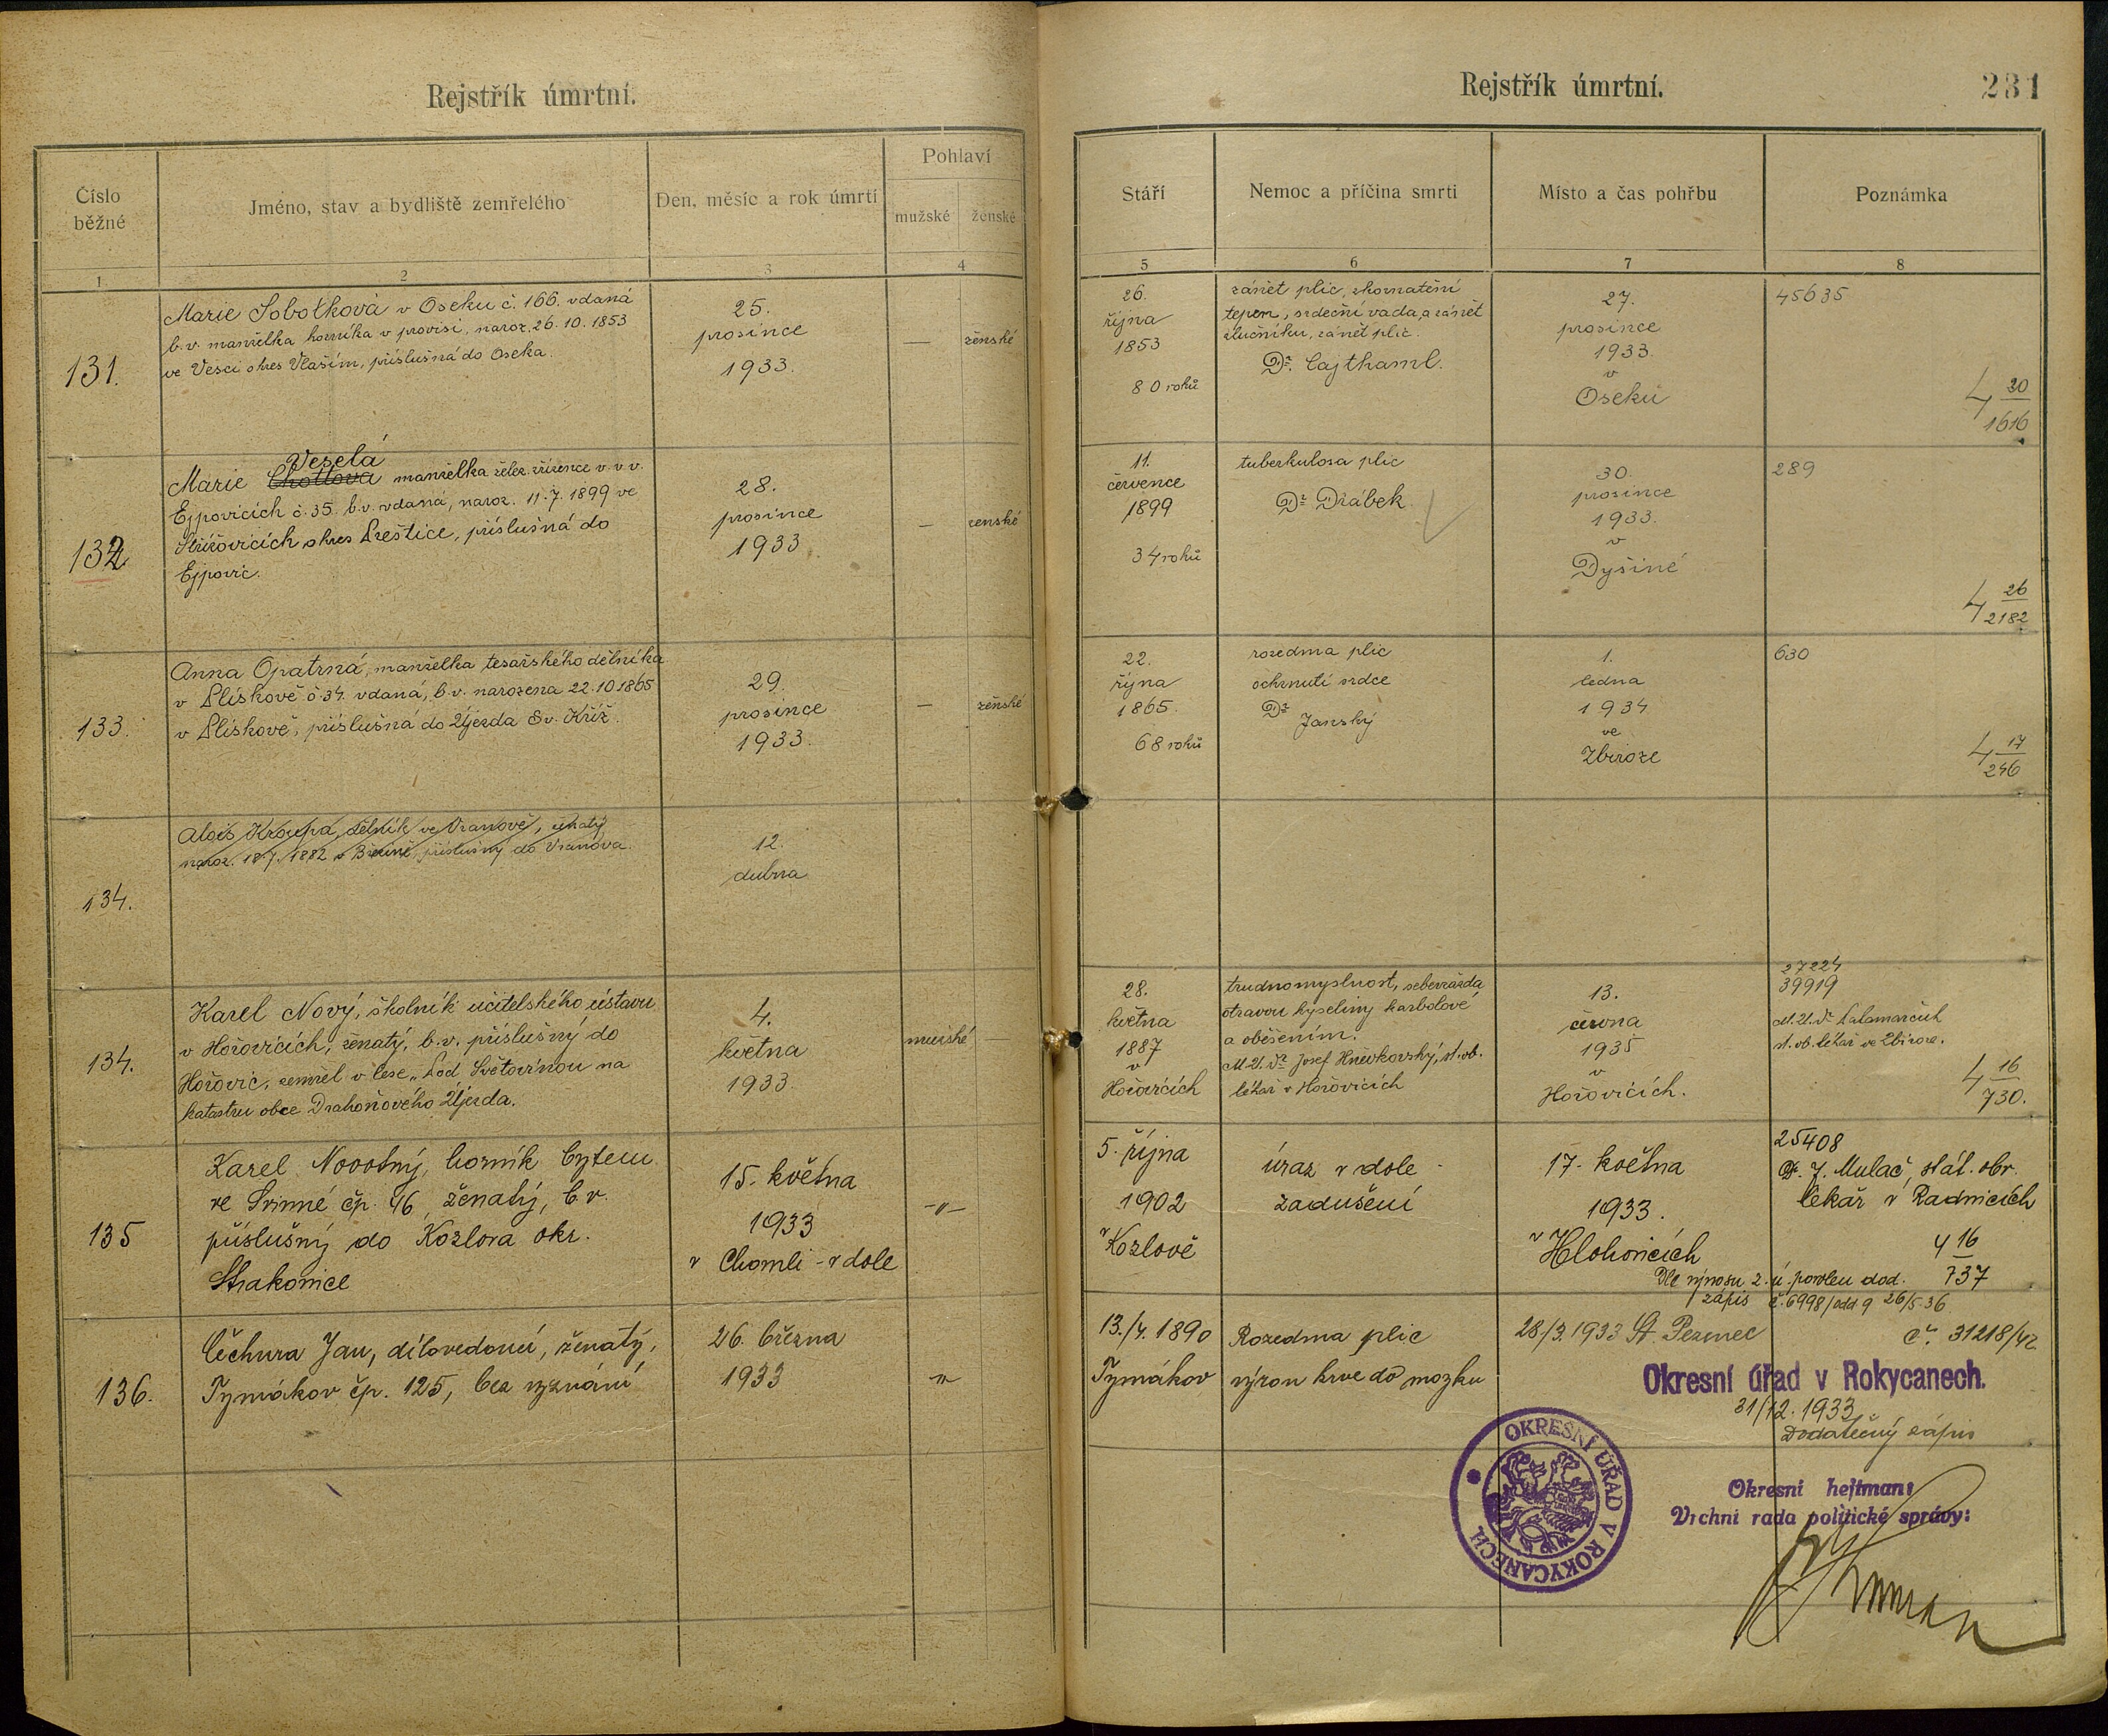 Rejstřík úmrtní.
Číslo běžné
Jméno, stav a bydliště zemřelého
Den, měsíc a rok úmrtí
Pohlaví
mužské
ženské
1
2
3
4
131.
Marie Sobotková v Oseku č. 166. vdaná
b. v. manželka horníka v provisi, naroz. 26. 10. 1853
ve Vesci okres Vlaším, příslušná do Oseka.
25.
prosince
1933.
—
ženské
132
Veselá
Marie Chottova manželka želez. zřízence v. v. v.
Ejpovicích č. 35. b. v. vdaná, naroz. 11. 7. 1899 ve
Střížovicích okres Přeštice, příslušná do
Ejpovic.
28.
prosince
1933
—
ženské
133.
Anna Opatrná, manželka tesařského dělníka
v Plískově č 34. vdaná, b. v. narozena 22. 10 1865
v Plískově, příslušná do Újezda Sv. Kříž.
29.
prosince
1933.
—
ženské
134.
Alois Kroupa, dělník ve Vranově, ženatý,
naroz. 18. 7. 1882 v Březině, příslušný do Vranova.
12.
dubna
134.
Karel Nový, školník učitelského ústavu
v Hořovicích, ženatý, b. v. příslušný do
Hořovic, zemřel v lese „Pod Světovinou na
katastru obce Drahoňového Újezda.
4.
května
1933
mužské
135
Karel Novotný, horník bytem
ve Svinné čp. 46, ženatý, b. v.
příslušný do Kozlova okr.
Strakonice
15. května
1933
v Chomli - v dole
-"-
136.
Čechura Jan, dílovedoucí, ženatý,
Tymákov čp. 125, bez vyznání
26. března
1933
"
Rejstřík úmrtní.
231
Stáří
Nemoc a příčina smrti
Místo a čas pohřbu
Poznámka
5
6
7
8
26.
října
1853
80 roků
zánět plic, zkornatění
tepen, srdeční vada, a zánět
žlučníku, zánět plic.
Dr. Cajthaml.
27.
prosince
1933.
v
Oseku
45635
4 20
1616
11.
července
1899
34 roků
tuberkulosa plic
Dr Drábek
30.
prosince
1933.
v
Dyšiné
289
4 26
2182
22.
října
1865.
68 roků
rozedma plic
ochrnutí srdce
Dr Janský
1.
ledna
1934
ve
Zbiroze
630
4 17
246
28.
května
1887
v
Hořovicích
trudnomyslnost, sebevražda
otravou kyseliny karbolové
a oběšením.
M. U. Dr Josef Hněvkovský, st. ob.
lékař v Hořovicích
13.
června
1935
v
Hořovicích.
27224
39919
st. ob. lékař ve Zbiroze.
4 16
730.
5. října
1902
v Kozlově
úraz v dole -
zadušení
17. května
1933.
v Hlohovicích
25408
Dr. J. Mulač, stát. obv.
lékař v Radnicích
4 16
737
Dle výnosu z. ú. povolen dod.
zápis č. 6998/odd 9 26/5 36
13./4. 1890
Tymákov
Rozedma plic
výron krve do mozku
28/3. 1933 St. Plzenec
č. 31218/42
Okresní úřad v Rokycanech.
31/12. 1933
Dodatečný zápis
OKRESNÍ ÚŘAD V ROKYCANECH
Okresní hejtman:
Vrchní rada politické správy: